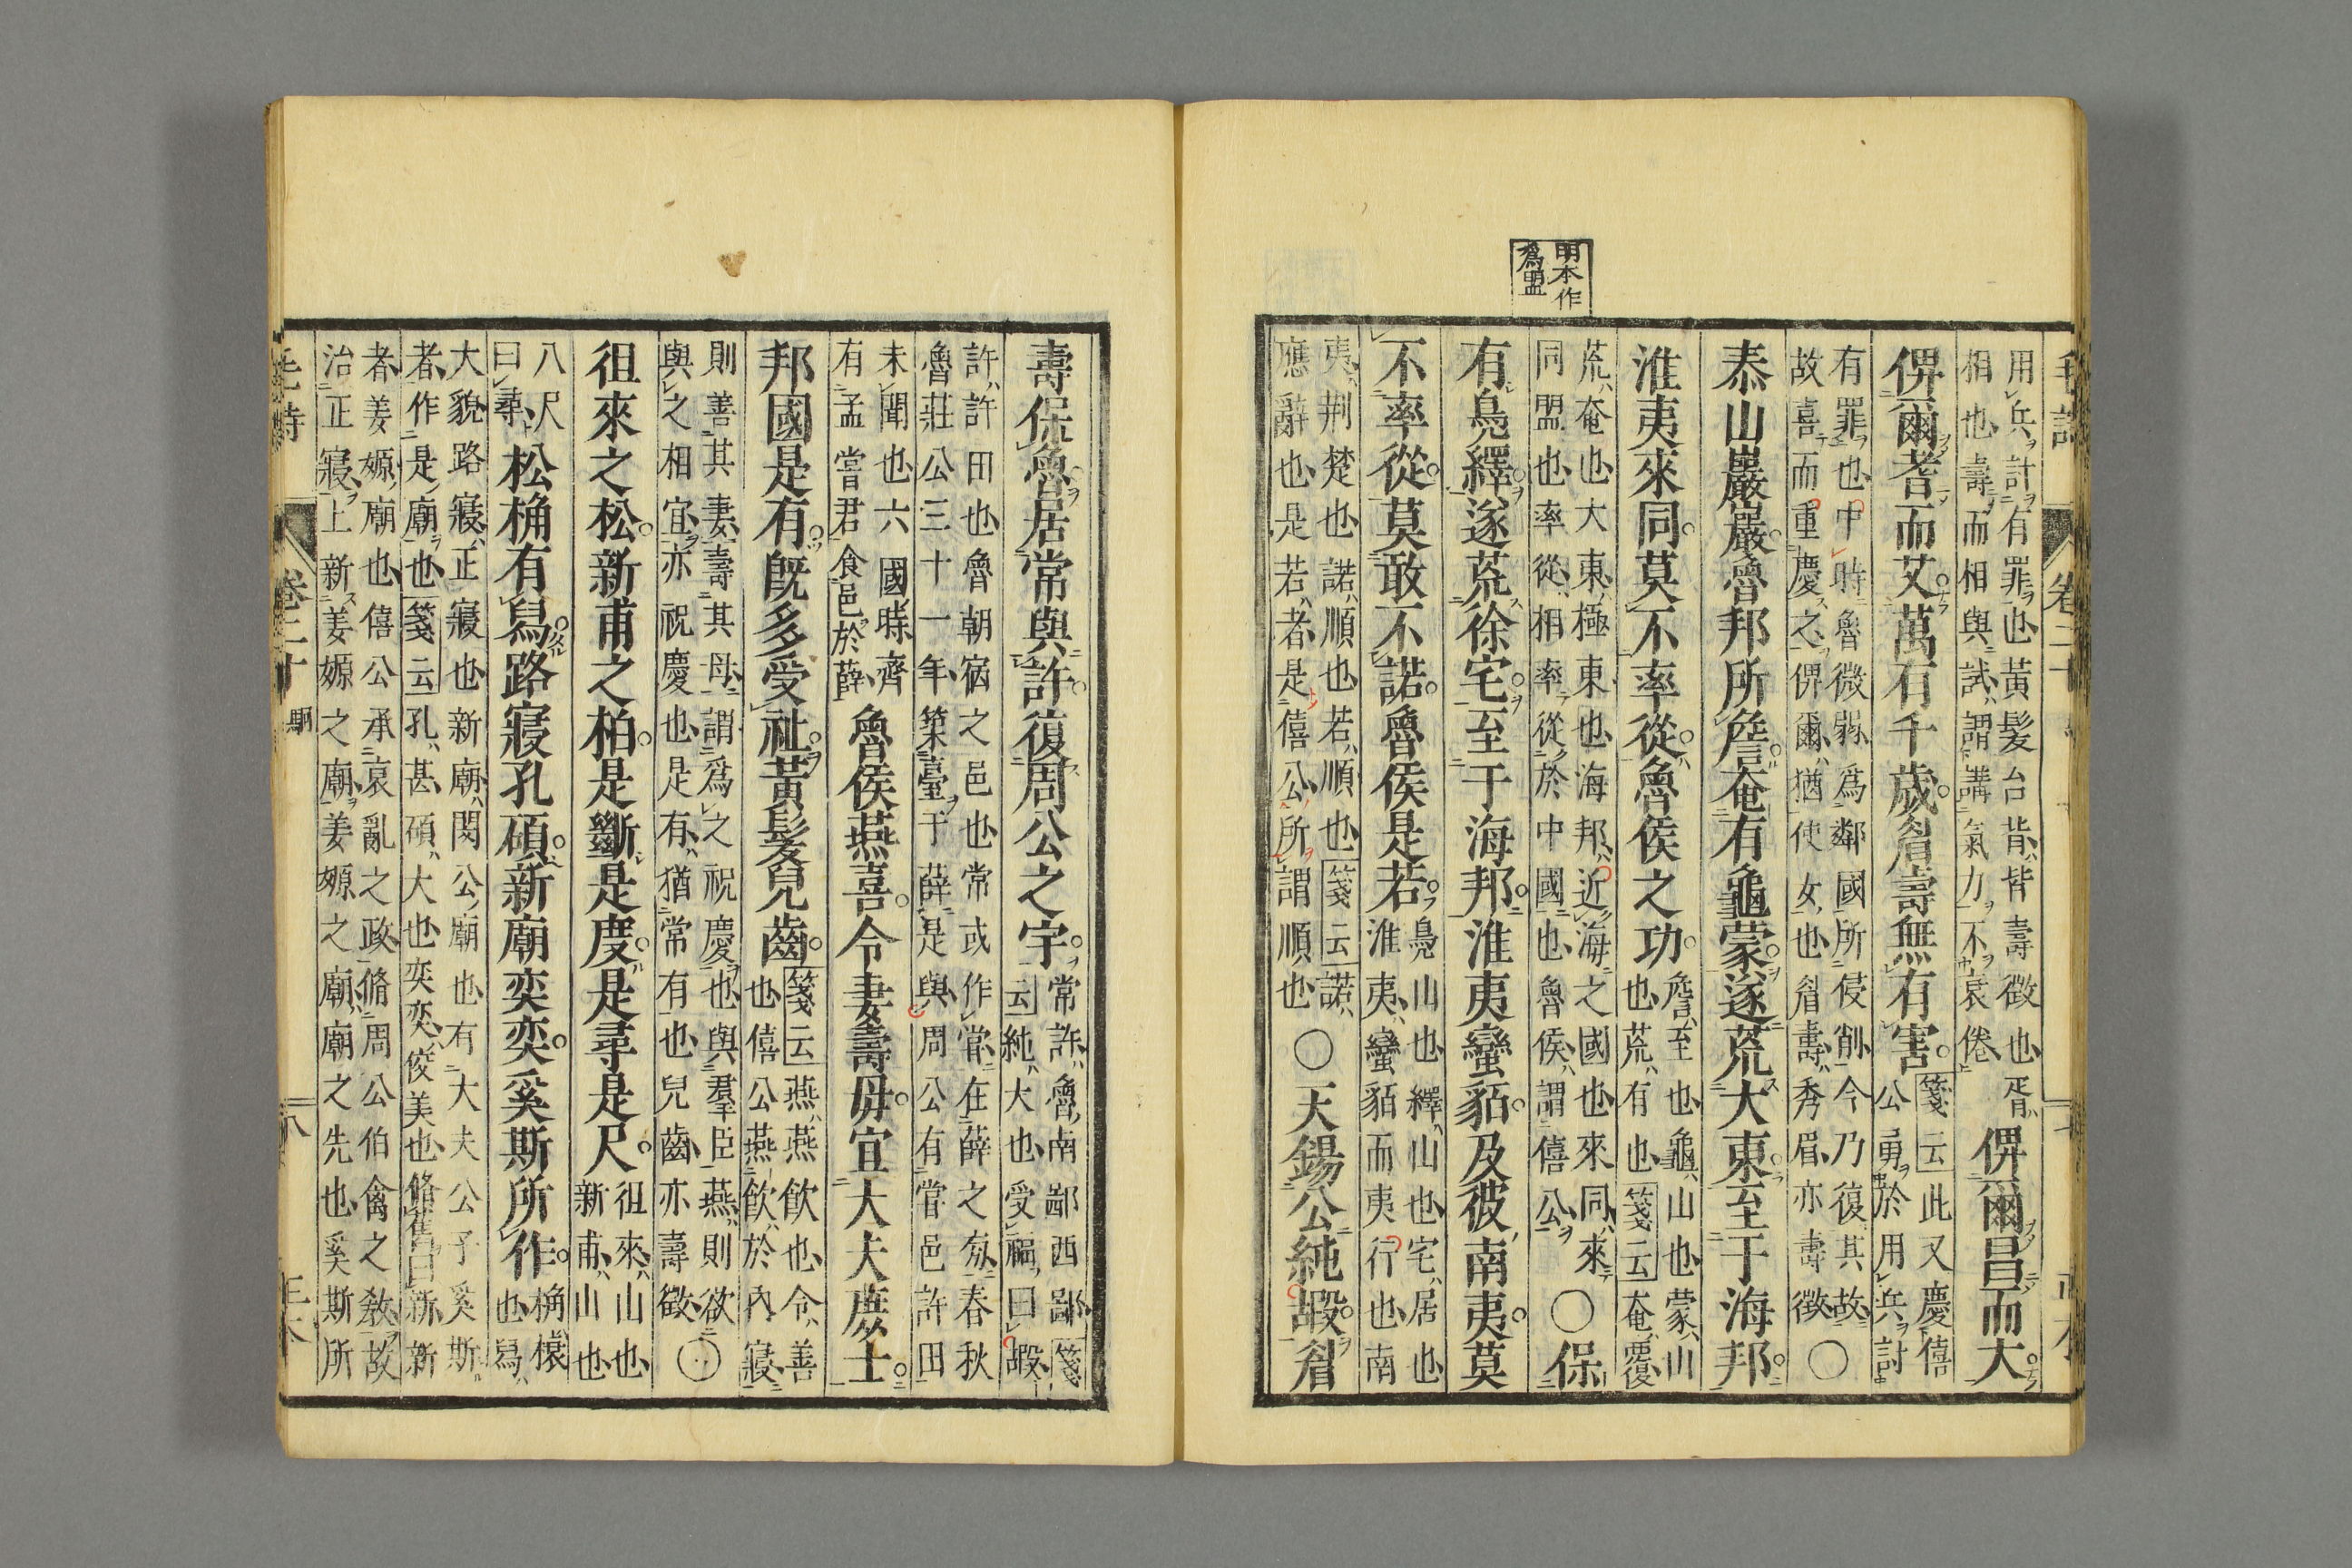 毛詩
卷二十
明本作
爲盟
用兵計有罪也黃髮台背皆壽徵也胥
相也壽而相與試謂講氣力不衰倦
俾爾昌而大
俾爾耆而艾萬石千歲眉壽無有害
箋云此又慶僖
公勇於用兵討
有罪也中時魯微弱爲鄰國所侵削今乃復其故
故喜而重慶之俾爾猶使女也眉壽秀眉亦壽徵
○
泰山巖巖魯邦所詹奄有龜蒙遂荒大東至于海邦
淮夷來同莫不率從魯侯之功
詹至也龜山也蒙山
也荒有也箋云奄覆
荒奄也大東極東也海邦近海之國也來同來
同盟也率從相率從於中國也魯侯謂僖公
○保
有鳧繹遂荒徐宅至于海邦淮夷蠻貊及彼南夷莫
不率從莫敢不諾魯侯是若
鳧山也繹山也宅居也
淮夷蠻貊而夷行也南
夷荆楚也諾順也若順也箋云諾
應辭也是若者是僖公所謂順也
○天錫公純嘏眉
壽保魯居常與許復周公之宇
常許魯南鄙西鄙箋
云純大也受福曰嘏
許許田也魯朝宿之邑也常或作嘗在薛之旁春秋
魯莊公三十一年築臺于薛是與周公有嘗邑許田
未聞也六國時齊
有孟嘗君食邑於薛
魯侯燕喜令妻壽母宜大夫庶士
邦國是有既多受祉黃髮兒齒
箋云燕燕飮也令善
也僖公燕飮於內寢
則善其妻壽其母謂爲之祝慶也與羣臣燕則欲
與之相宜亦祝慶也是有猶常有也兒齒亦壽徵
○
徂來之松新甫之柏是斷是度是尋是尺
徂來山也
新甫山也
八尺
曰尋
松桷有舄路寢孔碩新廟奕奕奚斯所作
桷榱
也舄
大貌路寢正寢也新廟閔公廟也有大夫公子奚斯
者作是廟也箋云孔甚碩大也奕奕姣美也脩舊曰新新
者姜嫄廟也僖公承衰亂之政脩周公伯禽之敎故
治正寢上新姜嫄之廟姜嫄之廟廟之先也奚斯所
毛詩
卷二十
駉